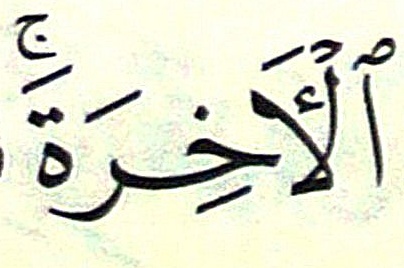 ٱلۡأَخِرَةَۚ